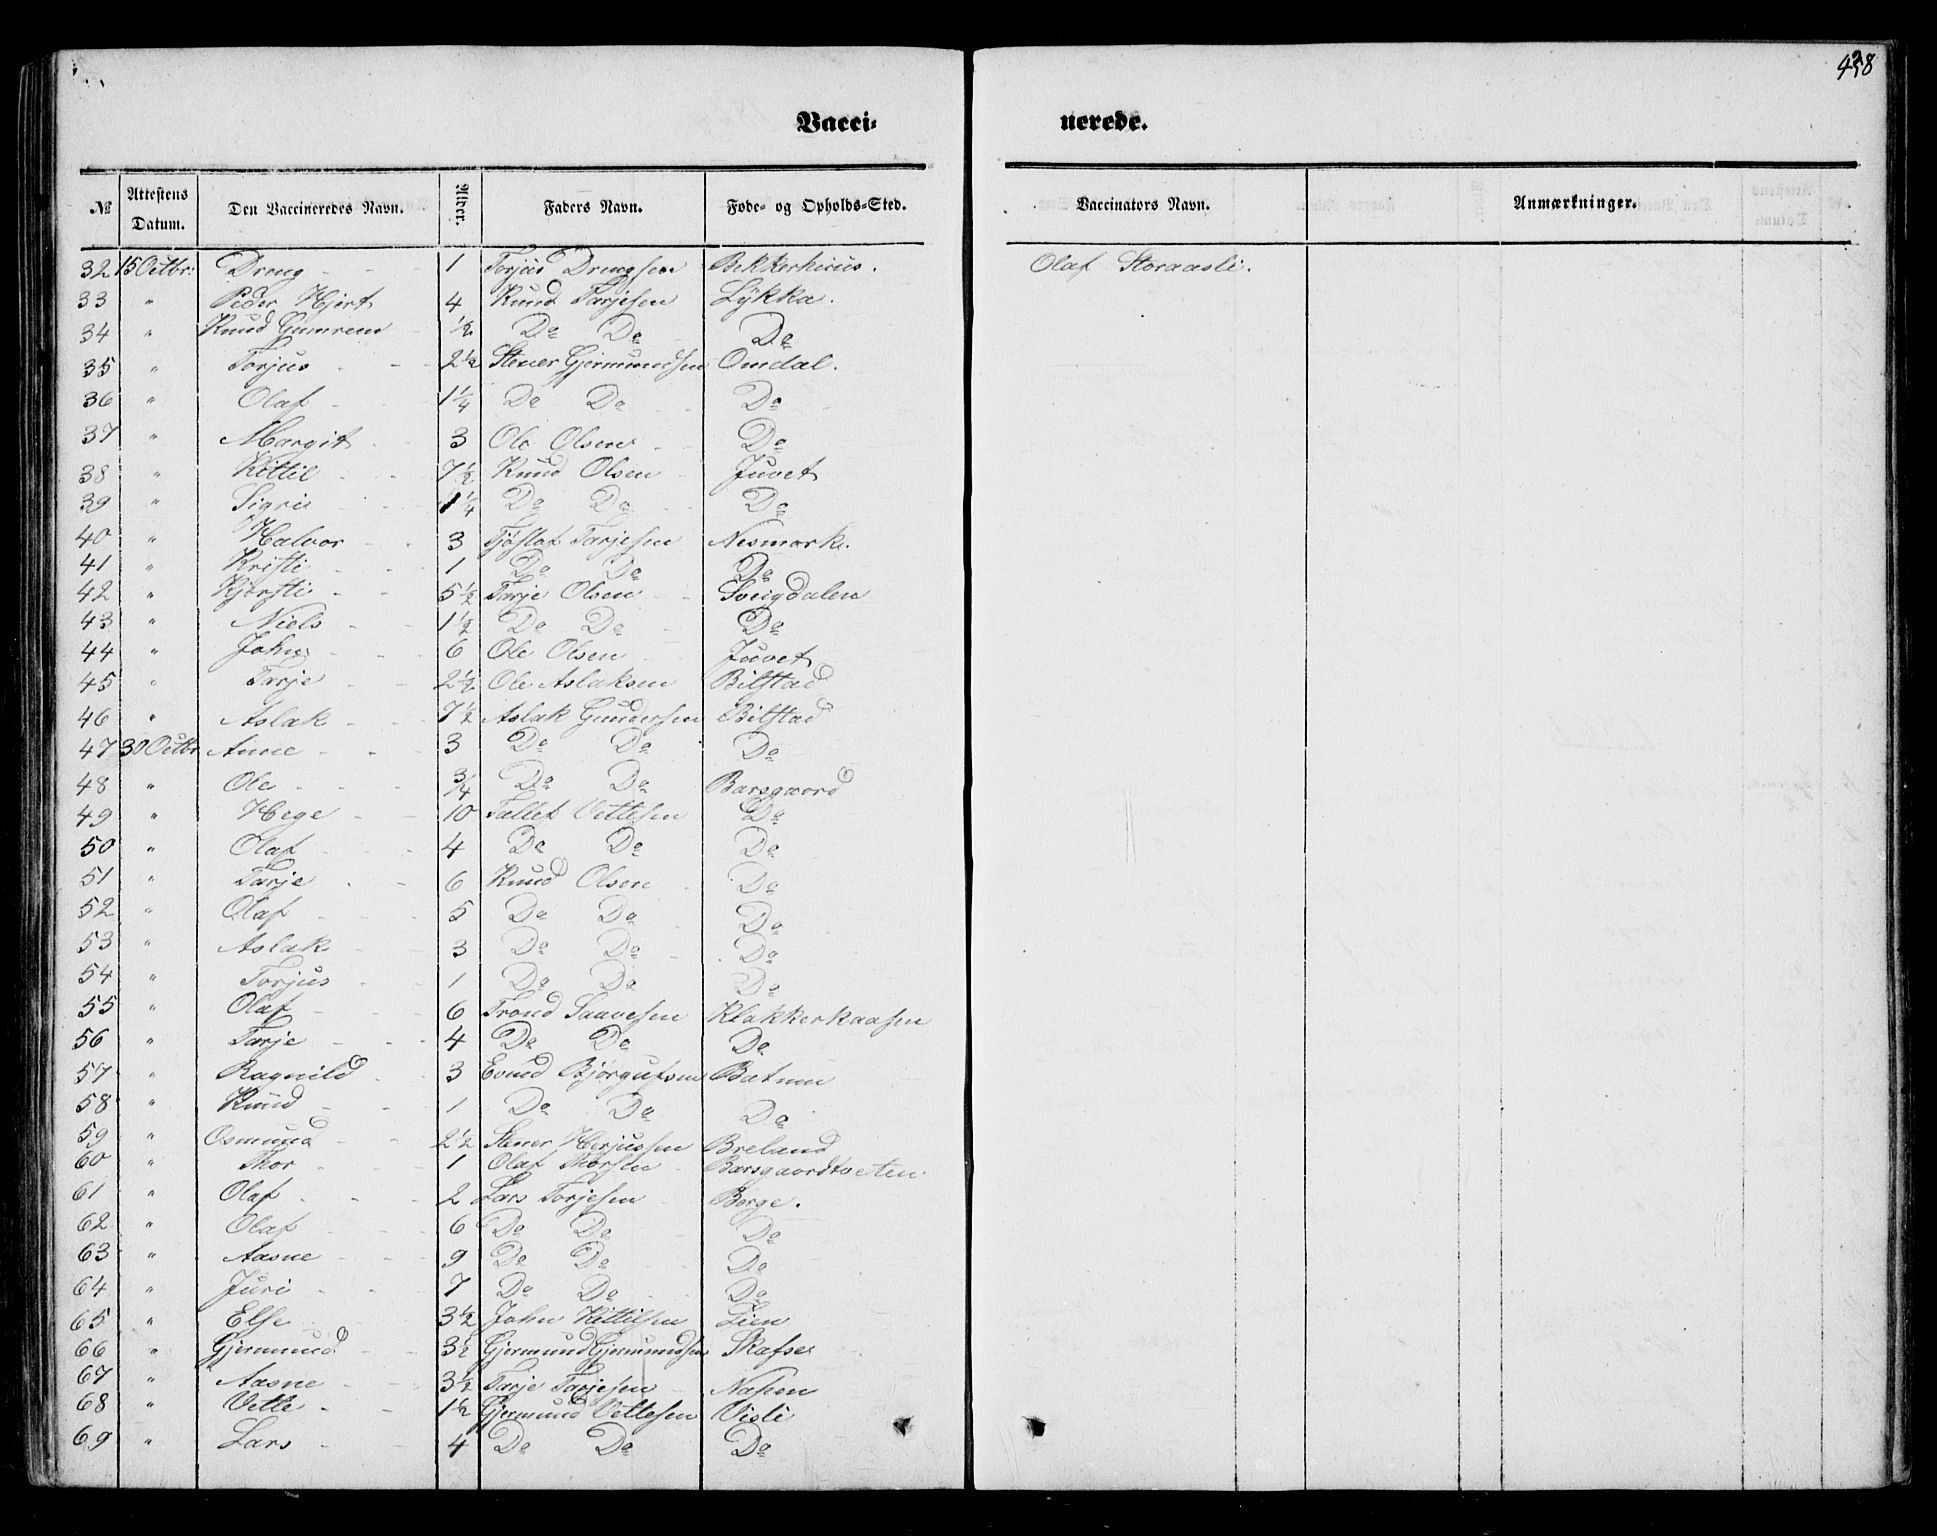 428
Vacci- nerede.
№ Attestens Datum. Den Vaccineredes Navn. Alder. Faders Navn. Føde- og Opholds-Sted. Vaccinators Navn. Anmærkninger.
32 15 Octbr: Dreng - - 1 Torjus Drengsen Bekkerhuus. Olaf Storaasli.
33 " Peder Hjort 4 Knud Tarjesen Lykka.
34 " Knud Gunreau ½ Do Do Do
35 " Torjus - - 2½ Stener Gjermundsen Omdal.
36 " Olaf - - 1¼ Do Do - Do
37 " Margit - 3 Ole Olsen - Do
38 " Kittil - - 7½ Knud Olsen Juvet
39 " Sigri - - 1¼ Do Do Do
40 " Halvor - - 3 Tjøstof Tarjesen Nesmork.
41 " Kristi - - 1 Do Do Do
42 " Kjersti - - 5½ Tarje Olsen - Svingdalen
43 " Niels - - 1½ Do Do - Do
44 " John - - 6 Ole Olsen Juvet
45 " Tarje - - 2½ Ole Aslaksen Bilstad
46 " Aslak - - 7½ Aslak Gundersen Bilstad
47 30 Octbr Anne - - 3 Do Do Do
48 " Ole - - - ¾ Do Do Barsgaord
49 " Hege - - 10 Tallef Vettesen Do
50 " Olaf - - 4 Do Do Do
51 " Tarje - - 6 Knud Olsen - Do
52 " Olaf - - 5 Do Do Do
53 " Aslak - - 3 Do Do - Do
54 " Torjus - - 1 Do Do Do
55 " Olaf - - - 6 Trond Saavesen Klakkerkaasen
56 " Tarje - - - 4 Do Do Do
57 " Ragnild - 3 Evind Bjørgufsen Bætuun
58 " Knud - - 1 Do Do Do
59 " Osmund - - 2½ Stener Herjussen Breland
60 " Thor - - 1 Olaf Thorsen - Barsgaordtveten
61 " Olaf - - - 2 Lars Torjesen - Berge.
62 " Olaf - - 6 Do Do - Do
63 " Aasne - - 9 Do Do Do
64 " Juri - - 7 Do Do - Do
65 " Else - - 3½ John Kittilsen Lien
66 " Gjermund - 3½ Gjermund Gjermundsen Skafse
67 " Aasne - - 3½ Tarje Tarjesen - Napen
68 " Vetle - - 1½ Gjermund Vetlesen Visli
69 " Lars - - 4 Do Do Do